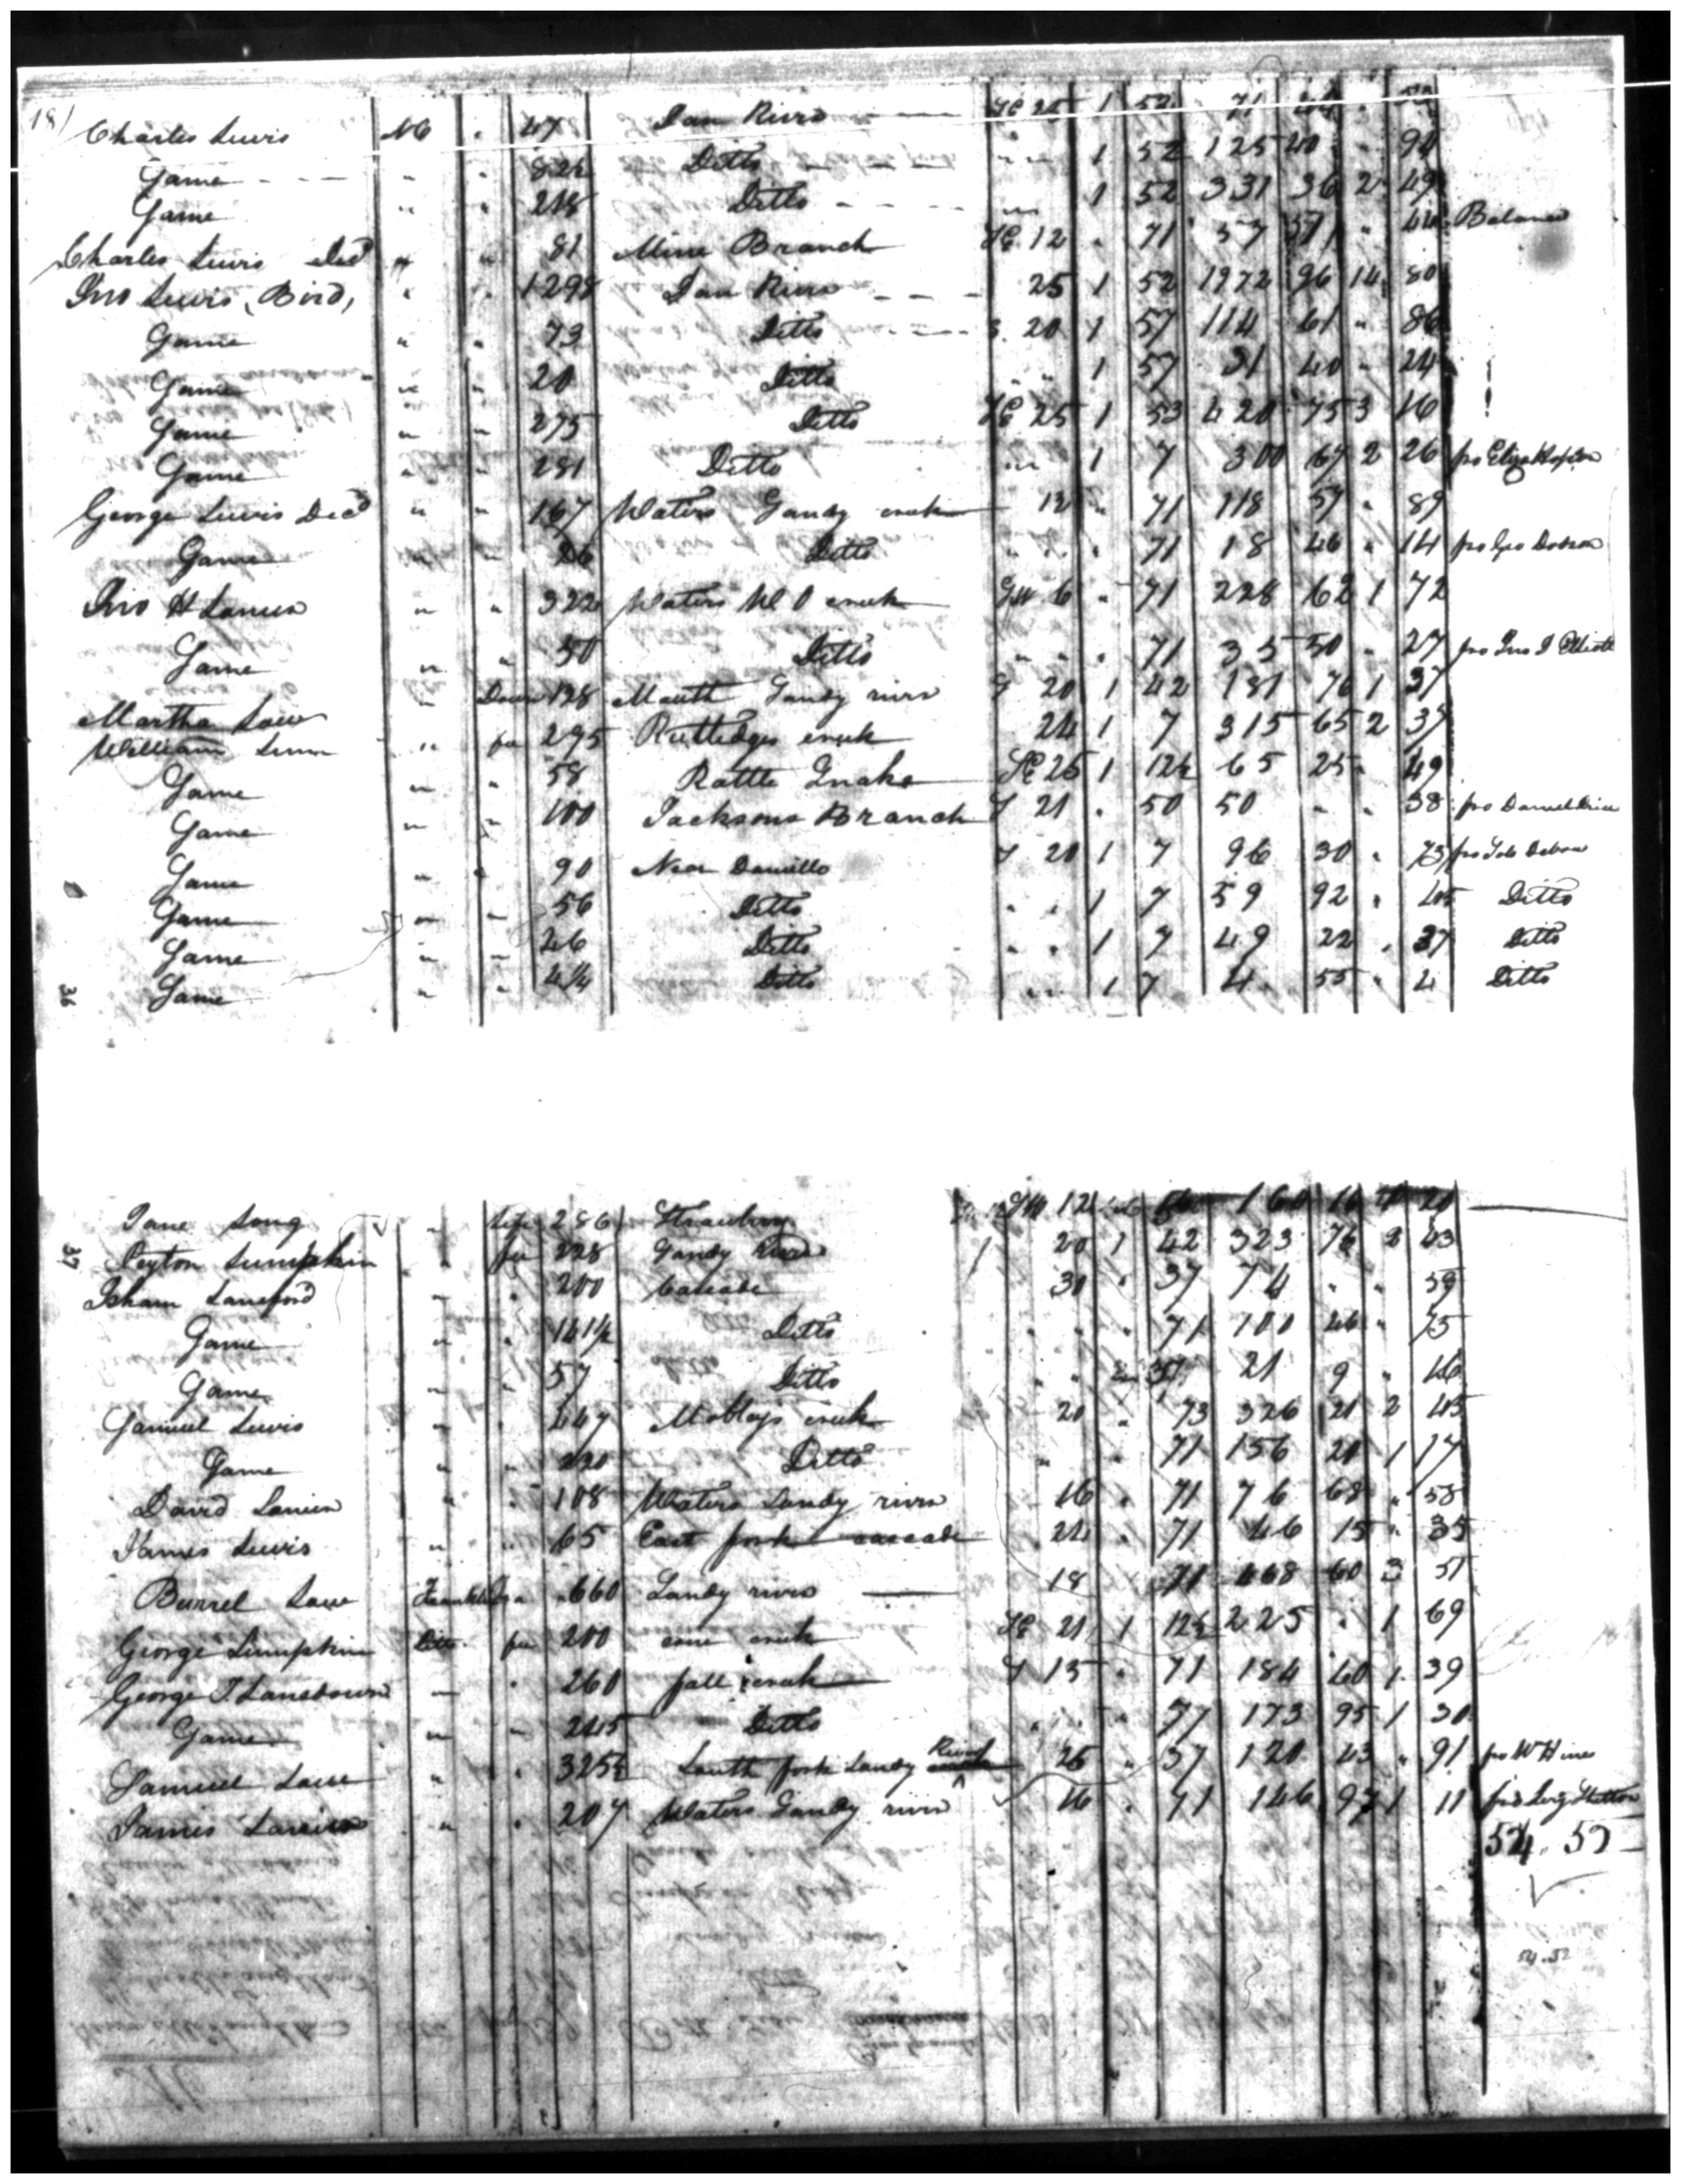 181
Charles Lewis NC " 47 Dan River SE 25 1 52 71 44 "
Same " " 82½ Ditto " " 1 52 125 40 " 94
Same " " 218 Ditto " " 1 52 331 36 2 49
Charles Lewis Decd " " 81 Mine Branch SE 12 " 71 57 51 " 44 Balance
Jno Lewis, Bird, " " 1298 Dan River 25 1 52 1972 96 14 80
Same " " 73 Ditto S 20 1 57 114 61 " 86
Same " " 20 Ditto " " 1 57 31 40 " 24
Same " " 275 Ditto SE 25 1 53 420 75 3 16
Same " " 281 Ditto " " 1 7 300 67 2 26 fro
George Lewis Decd " " 167 Waters Sandy creek 12 " 71 118 57 " 89
Same " " 26 Ditto " " " 71 18 46 " 14 fro Geo Dodson
Jno H Lanier " " 322 Waters creek SW 6 " 71 228 62 1 72
Same " " 50 Ditto " " " 71 35 50 " 27 fro Jno Elliott
Martha Low " Dower 128 Mouth Sandy river S 20 1 42 181 76 1 37
William Linn " fee 295 Rutledges creek 24 1 7 315 65 2 37
Same " " 58 Rattle Snake SE 25 1 12½ 65 25 " 49
Same " " 100 Jacksons Branch S 21 " 50 50 " " 38 fro Daniel Price
Same " " 90 Near Danville S 20 1 7 96 30 " 73 fro
Same " " 56 Ditto " " 1 7 59 92 " 45 Ditto
Same " " 46 Ditto " " 1 7 49 22 " 37 Ditto
36 Same " " 4¼ Ditto " " 1 7 4 55 " 4 Ditto
Jane Long " Life 286 Strawberry SW 12 " 56 160 16 1 20
37 Peyton Lumpkin " fee 228 Sandy River 20 1 42 323 76 2 43
Isham Lansford " " 200 Cascade 30 " 37 74 " " 59
Same " " 141½ Ditto " " " 71 100 46 " 75
Same " " 57 Ditto " " " 37 21 9 " 16
Samuel Lewis " " 447 Mobleys creek 20 " 73 326 21 2 45
Same " " 220 Ditto " " 71 156 20 1 17
David Lanier " " 108 Waters Sandy river 16 " 71 76 68 " 58
James Lewis " " 65 East fork cascade 22 " 71 46 15 " 35
Burrel Law Franklin " 660 Sandy river 18 71 468 60 3 51
George Lumpkin Ditto fee 200 cane creek SE 21 1 12½ 225 " 1 69
George T Lansdown " " 260 fall creek S 15 " 71 184 60 1 39
Same " " 245 Ditto " " " 71 173 95 1 30
Samuel Law " " 325½ South fork Sandy River 26 " 37 120 43 " 91 fro W Hines
James Lanier " " 207 Waters Sandy river 16 " 71 146 97 1 11 fro
54.52
54.52